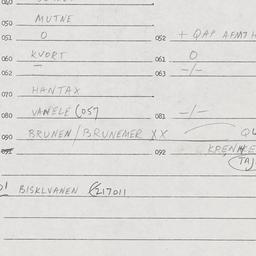 040
050 MUTNE
051 O 052 + QAP AFMTH
060 KVORT 061 O
062 — 063 -/-
070 HANTAX
080 VANELE (057 081 -/-
090 BRUNEN/BRUNEMER XX
091 092 KRENKE
BISKLVANEN 217011